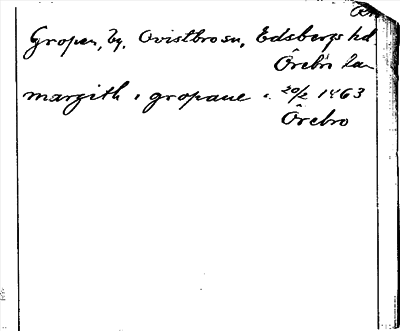 Gropen, by, Qvistbro sn, Edsbergs hd
Örebro län
margith i gropane c. 20/2 1463
Örebro